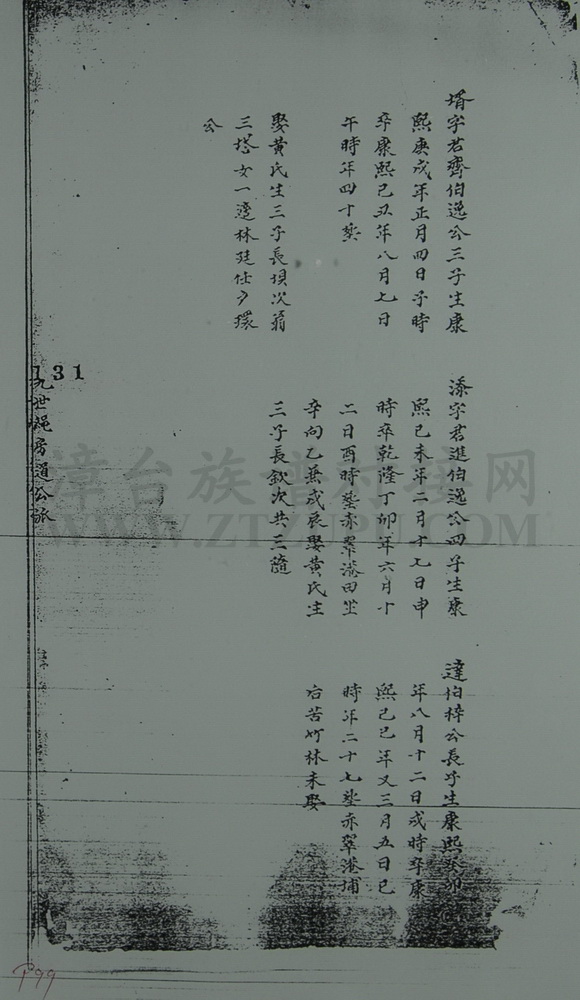 壻字若齊伯逸公三子生康
熙庚戌年正月四日子時
卒康熙己丑年八月七日
午時年四十塟
娶黃氏生三子長埧次翁
三塔女一適林廷仕夕環
公
添字君進伯逸公四子生康
熙己未年二月十七日申
時卒乾隆丁卯年六月十
二日酉時塟赤翠港田坐
辛向乙兼戌辰娶黃氏生
三子長欽次共三隨
達伯梓公長子生康熙癸卯
年八月十二日戌時卒康
熙己巳年又三月五日巳
時年二十七塟赤翠港埔
右苦竹林未娶
131
九世 房 公派
漳台族谱对接网
WWW.ZTZUPU.COM
P99